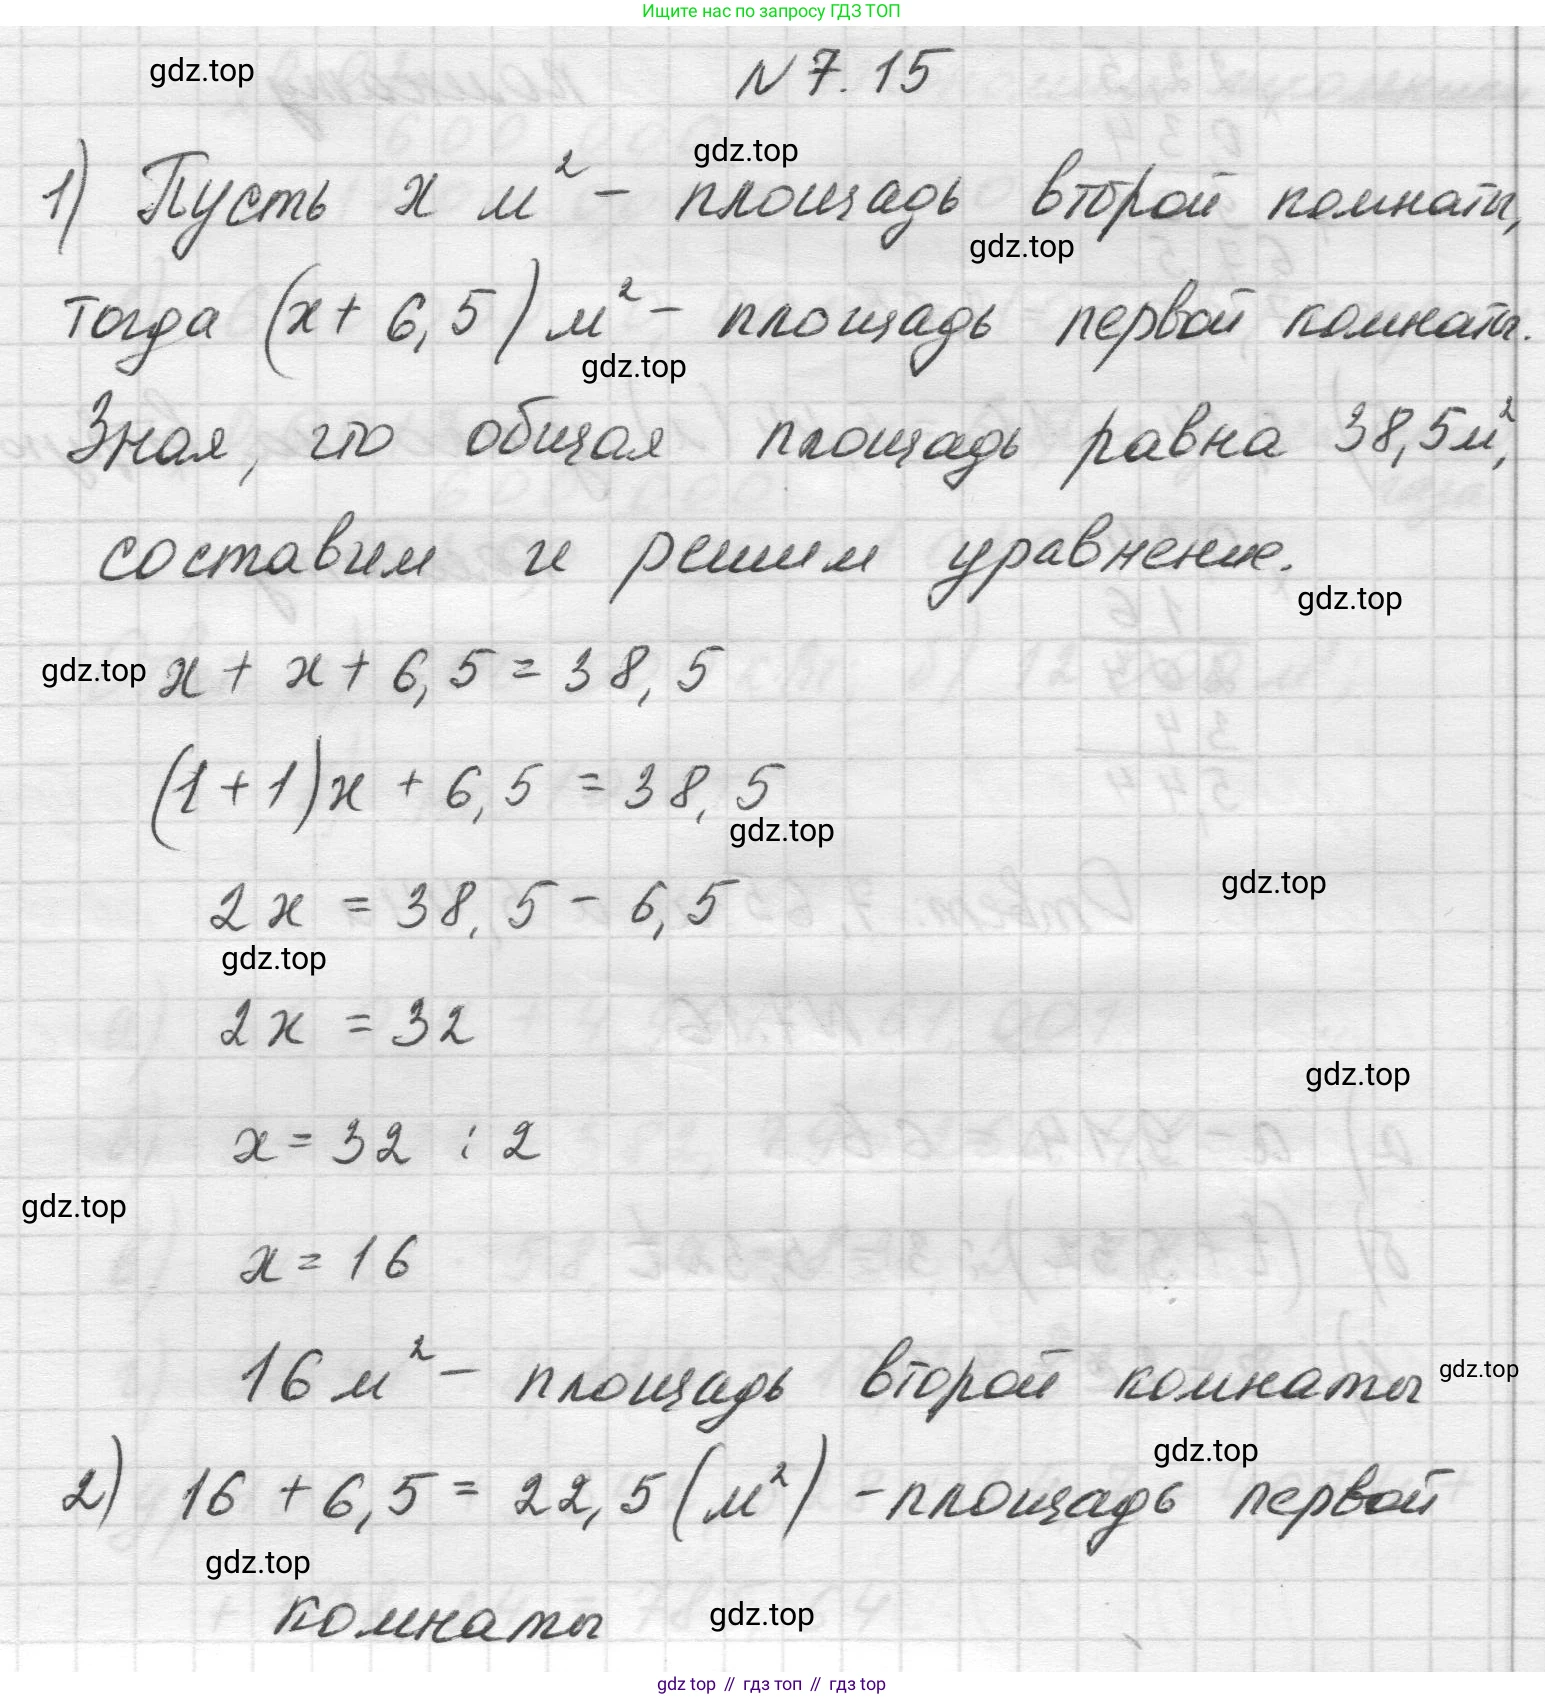 Ищите нас по запросу ГДЗ ТОП
gdz.top
N 7.15
gdz.top
1) Пусть x м² – площадь второй комнаты,
gdz.top
тогда (x + 6,5) м² – площадь первой комнаты.
gdz.top
Зная, что общая площадь равна 38,5 м²,
составим и решим уравнение.
gdz.top
gdz.top
x + x + 6,5 = 38,5
(1 + 1)x + 6,5 = 38,5
gdz.top
gdz.top
2x = 38,5 – 6,5
gdz.top
2x = 32
gdz.top
x = 32 : 2
gdz.top
x = 16
16 м² – площадь второй комнаты
gdz.top
gdz.top
2) 16 + 6,5 = 22,5 (м²) – площадь первой
gdz.top
комнаты
gdz.top
gdz top // гдз топ // гдз top